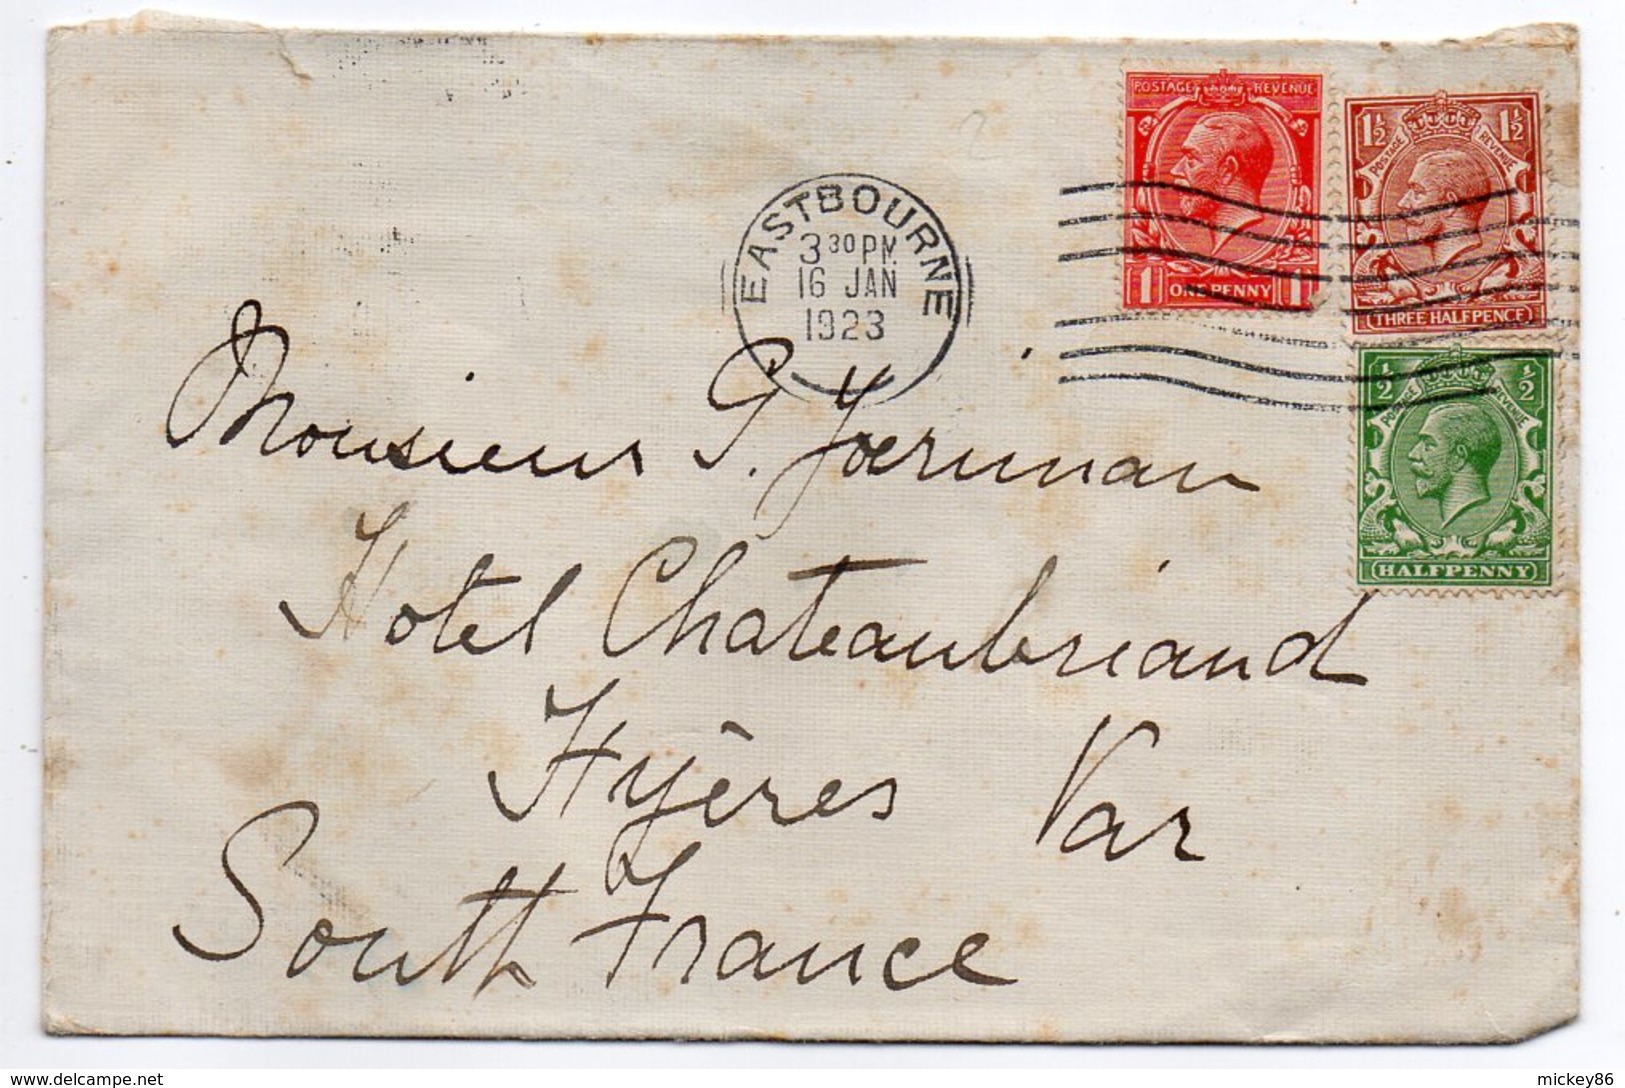 POSTAGE REVENUE
ONE PENNY
1 1
1½ 1½
POSTAGE REVENUE
THREE HALFPENCE
½ ½
POSTAGE REVENUE
HALFPENNY
EASTBOURNE
3 30 PM
16 JAN
1923
Monsieur G.
Hotel Chateaubriand
Hyères Var
South France
delcampe.net
mickey86